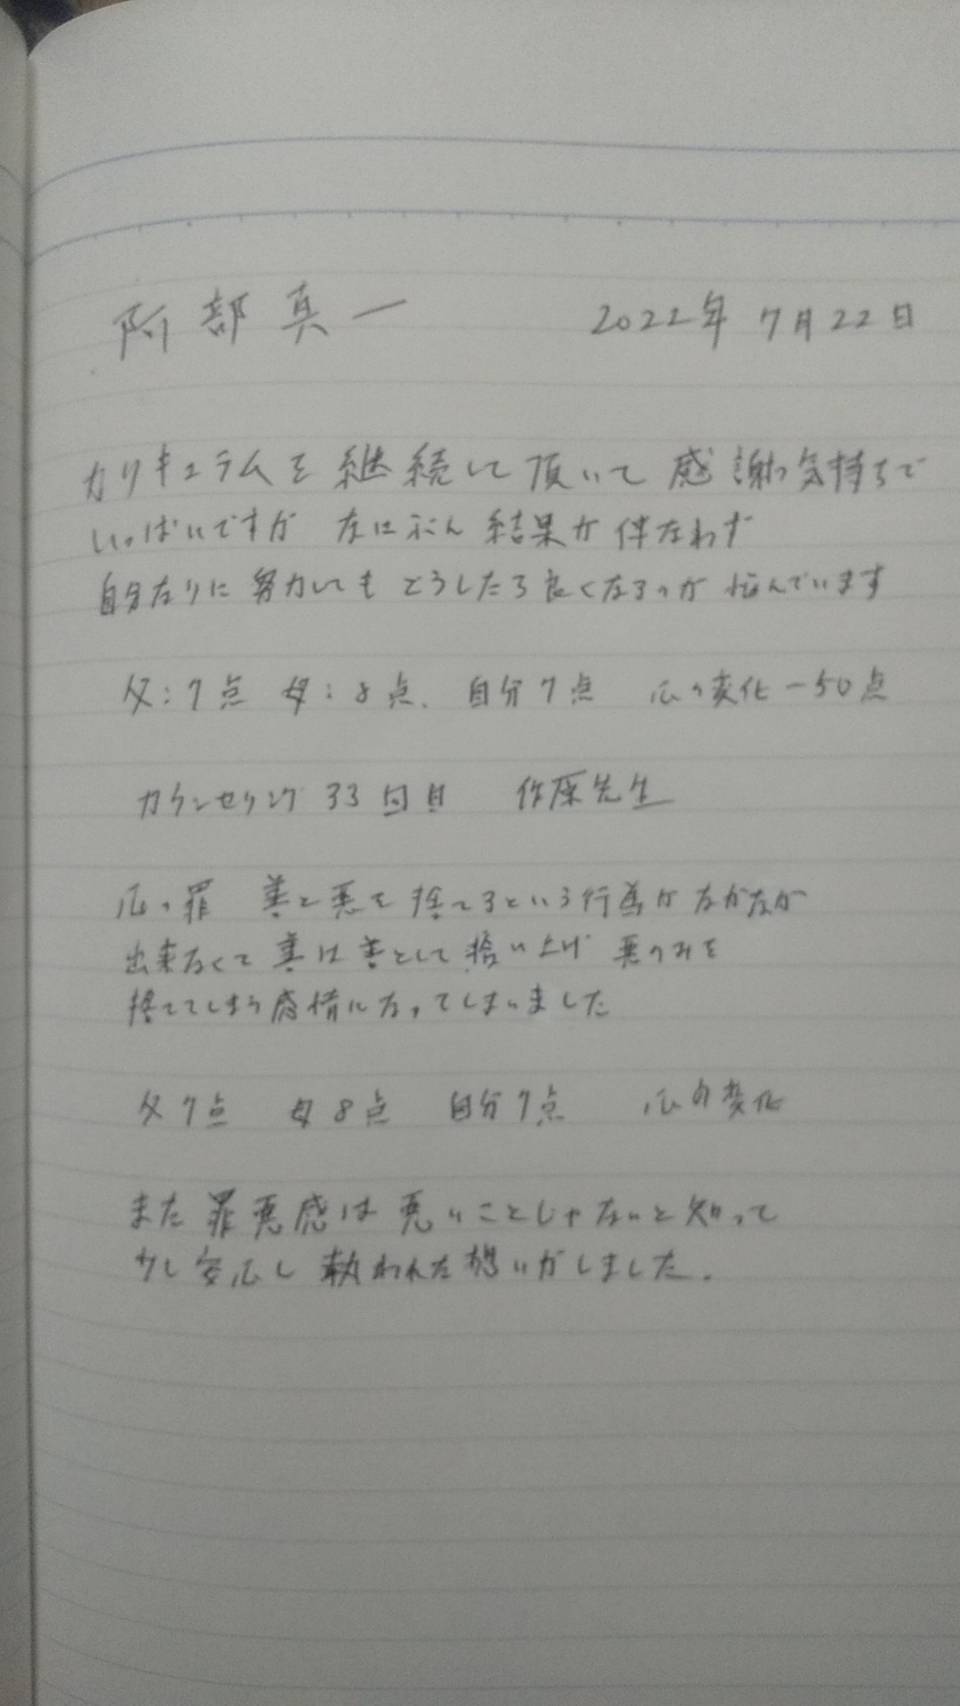 阿部真一 2022年 7月22日
カリキュラムを継続して頂いて 感謝の気持ちで
いっぱいですが なにぶん 結果が 伴なわず
自分なりに 努力しても どうしたら良くなるのか 悩んでいます
父:7点 母:8点. 自分7点 心の変化 -50点
カウンセリング 33回目 作原先生
心の罪 善と悪を 捨てるという行為が なかなか
出来なくて 善は善として 拾い上げ 悪のみを
捨ててしまう感情になってしまいました
父7点 母8点 自分7点 心の変化
また 罪悪感は 悪いことじゃないと知って
少し安心し 救われた想いがしました.